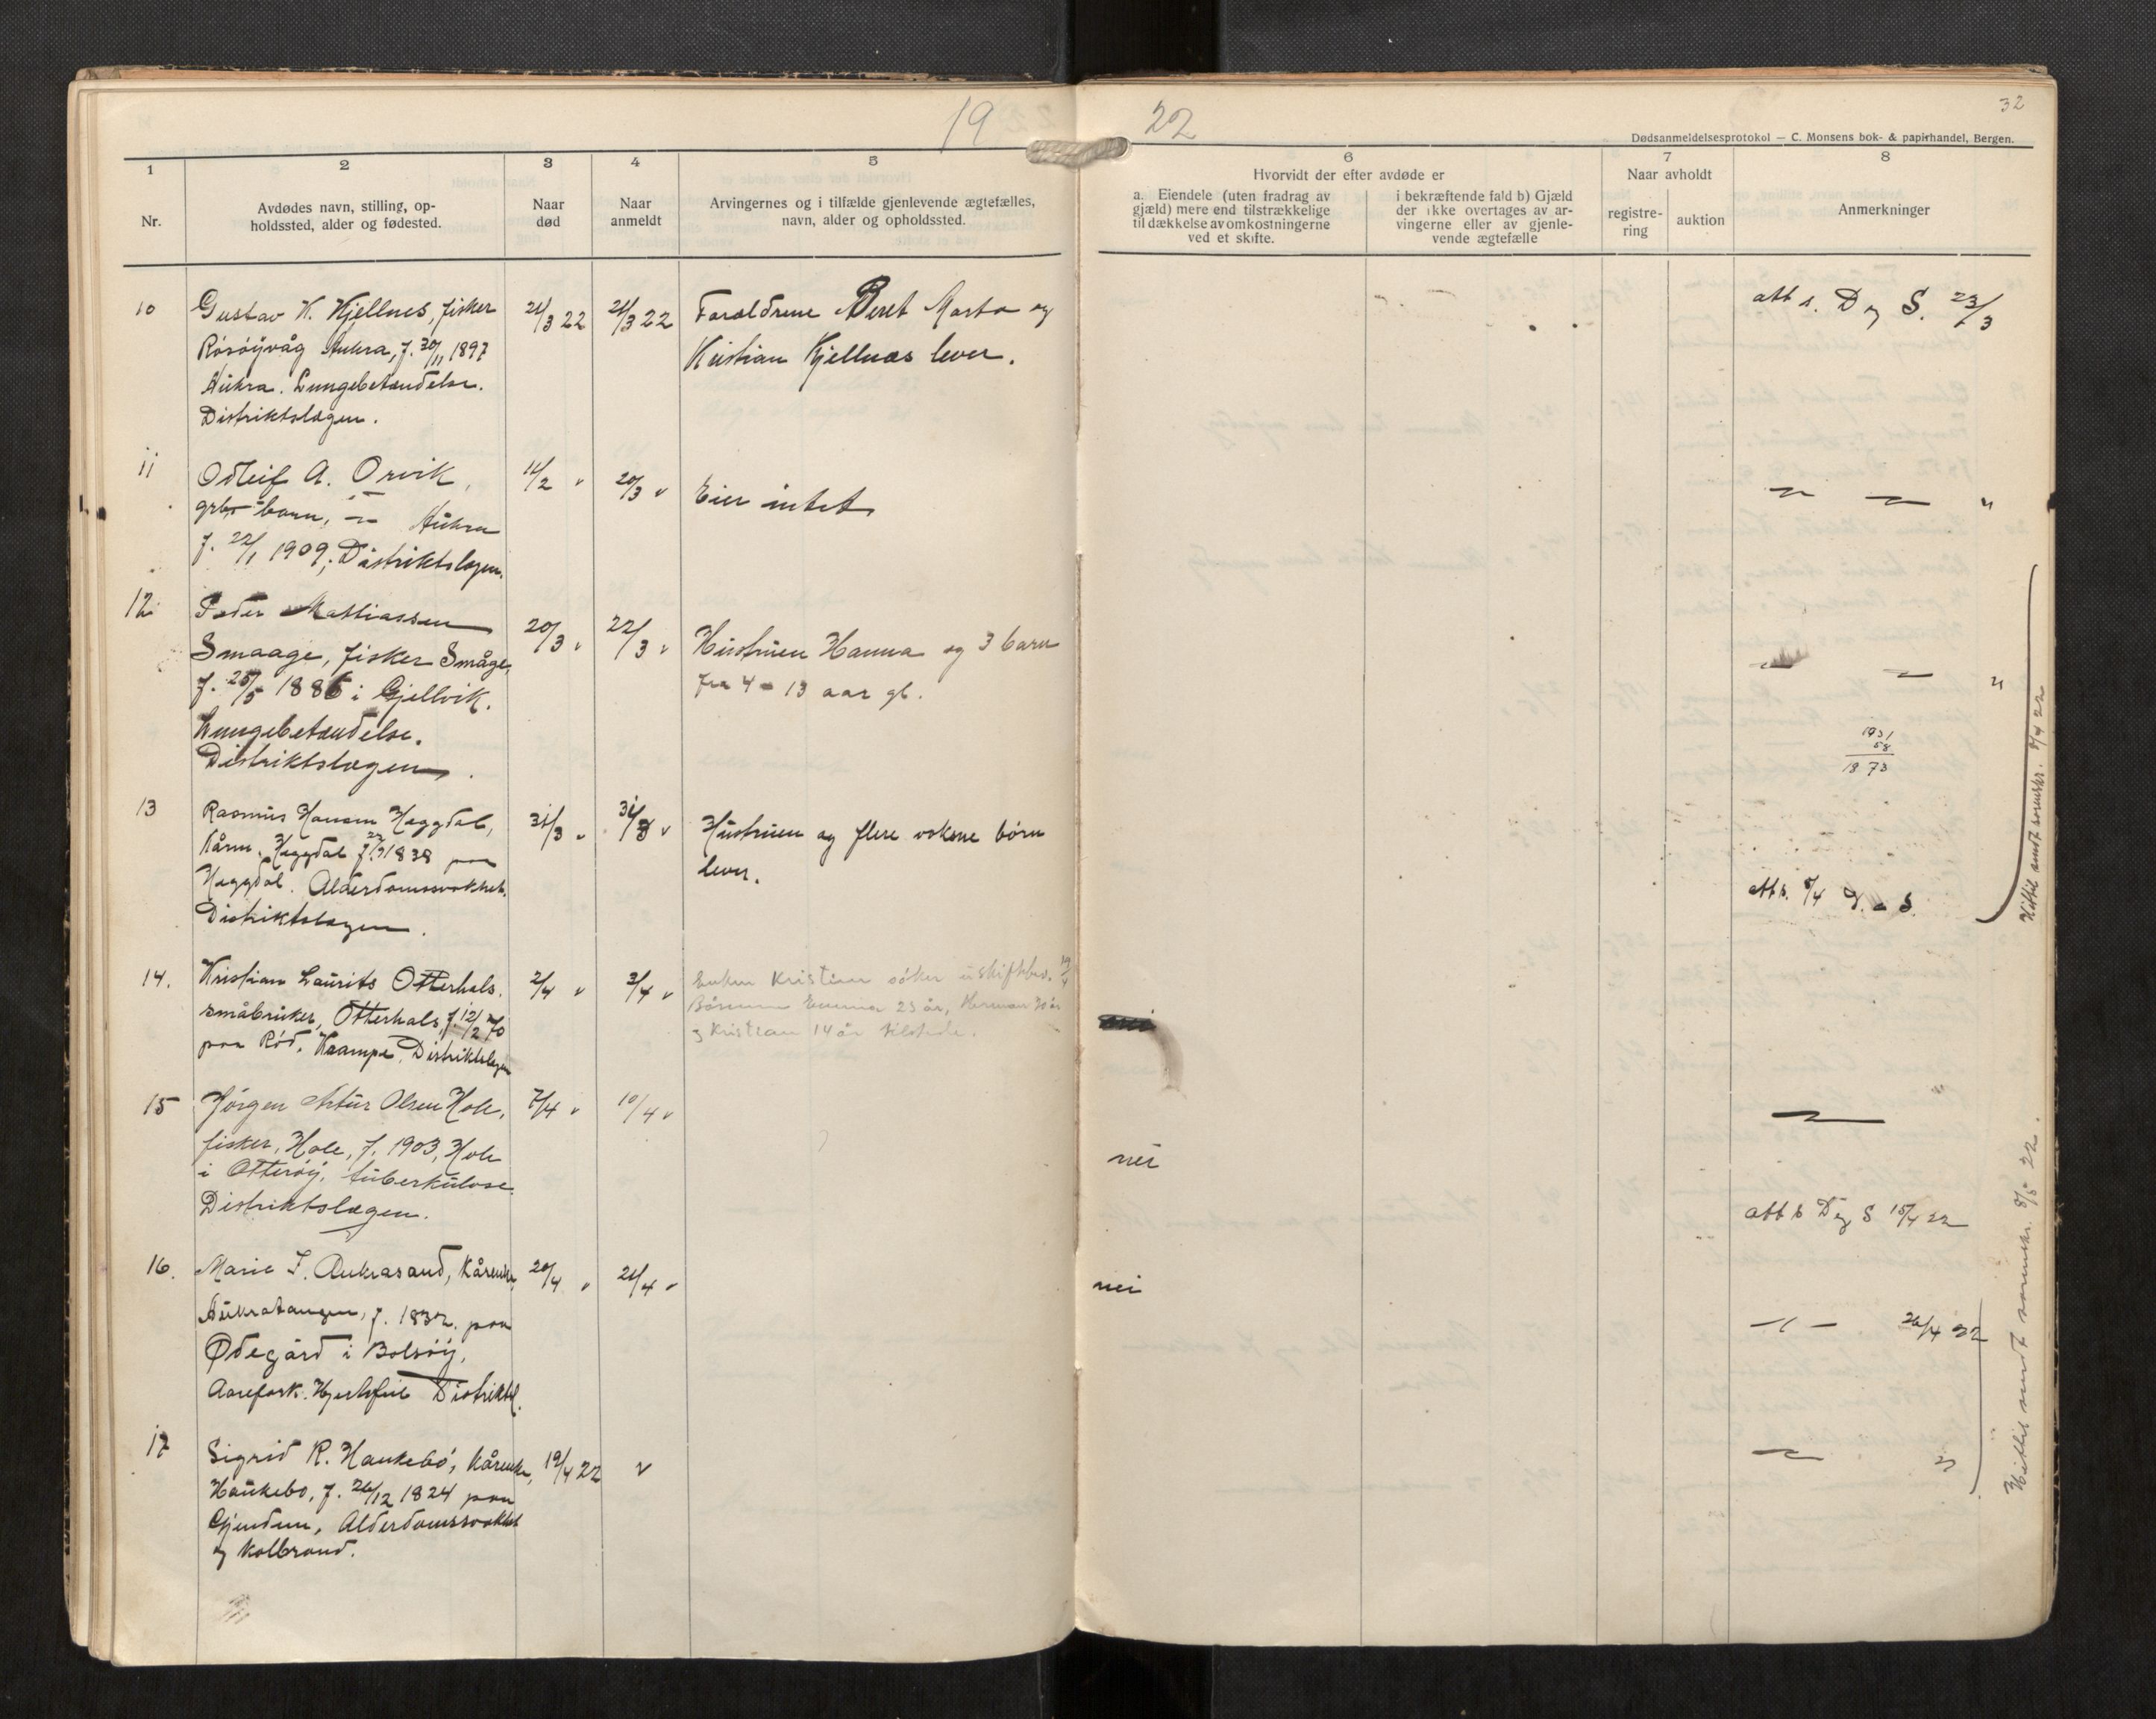 19 22
32
Dødsanmeldelsesprotokol — C. Monsens bok- & papirhandel, Bergen.
1
Nr.
2
Avdødes navn, stilling, op-
holdssted, alder og fødested.
3
Naar
død
4
Naar
anmeldt
5
Arvingernes og i tilfælde gjenlevende ægtefælles,
navn, alder og opholdssted.
6
Hvorvidt der efter avdøde er
a. Eiendele (uten fradrag av
gjæld) mere end tilstrækkelige
til dækkelse av omkostningerne
ved et skifte.
i bekræftende fald b) Gjæld
der ikke overtages av ar-
vingerne eller av gjenle-
vende ægtefælle
7
Naar avholdt
registre-
ring
auktion
8
Anmerkninger
10
Gustav K. Kjellnes, fisker
Rósöyvåg Aukra, f. 30/11 1897
Aukra. Lungebetændelse.
Distriktslægen.
21/3 22
21/3 22
Foraldrene Beret Marta og
Kristian Kjellnæs lever.
att s. D og S. 23/3
11
Odleif A. Orvik,
grbr barn, Aukra
f. 22/1 1909, Distriktslægen.
11/2 "
20/3 "
Eier intet
"
12
Peder Mattiassen
Smaage, fisker Småge,
f. 25/5 1886 i Gjellvik.
Lungebetændelse.
Distriktslægen.
20/3 "
22/3 "
Hustruen Hanna og 3 barn
fra 4 - 13 aar gl.
"
1931
58
1873
13
Rasmus Hansen Heggdal,
Kårm. Heggdal f. 1838 paa
Heggdal. Alderdomssvakhet.
Distriktslægen.
31/3 "
31/3 "
Hustruen og flere voksne børn
lever.
att s. 8/4 D. - S.
Hittil sendt sorenskr. 8/4 22
14.
Kristian Laurits Otterhals.
småbruker, Otterhals, f. 12/2 70
paa Röd. Krampe. Distriktslægen
2/4 "
3/4 "
Enken Kristian söker uskiftebev. 19/4
Börnene Emma 23 år, Herman 20 år
og Kristian 14 år tilstede.
nei
15
Jörgen Artur Olsen Hole,
fisker, Hole, f. 1903, Hole
i Otteröy, tuberkulose.
Distriktslægen.
7/4 "
10/4 "
nei
att s D og S 15/4 22
16.
Marie I. Aukrasand, Kårenke,
Aukratangen, f. 1832. paa
Ødegård i Bolsöy,
Aarefork. Hjertefeil Distriktsl.
20/4 "
21/4 "
nei
- " - 26/4 22
17
Sigrid R. Haukebö, Kårenke,
Haukebo, f. 26/12 1824 paa
Gjendem, Alderdomssvakhet
og Kolbrand.
19/4 22
"
"
Hittil sendt sorenskr. 8/5 22.